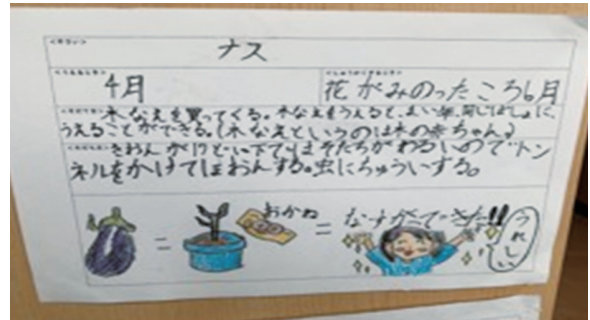 ナス
4月
花がみのったころ6月
木なえを買ってくる。木なえをうえると、まい年、同じばしょに、
うえることができる。(木なえというのは木の赤ちゃん)
きおんが17どい下ではそだちがわるいのでトン
ネルをかけてほおんする。虫にちゅういする。
おかね
=
=
なすがでーきた!!
うれしい